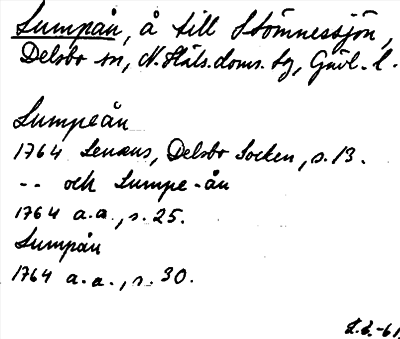 Lumpån, å till Stömnessjön,
Delsbo sn, N. Häls. doms. sg, Gävl. l.
Lumpeån
1764 Lenæus, Delsbo Socken, s. 13.
-- och Lumpe-ån
1764 a.a., s. 25.
Lumpån
1764 a.a., s. 30.
-61.